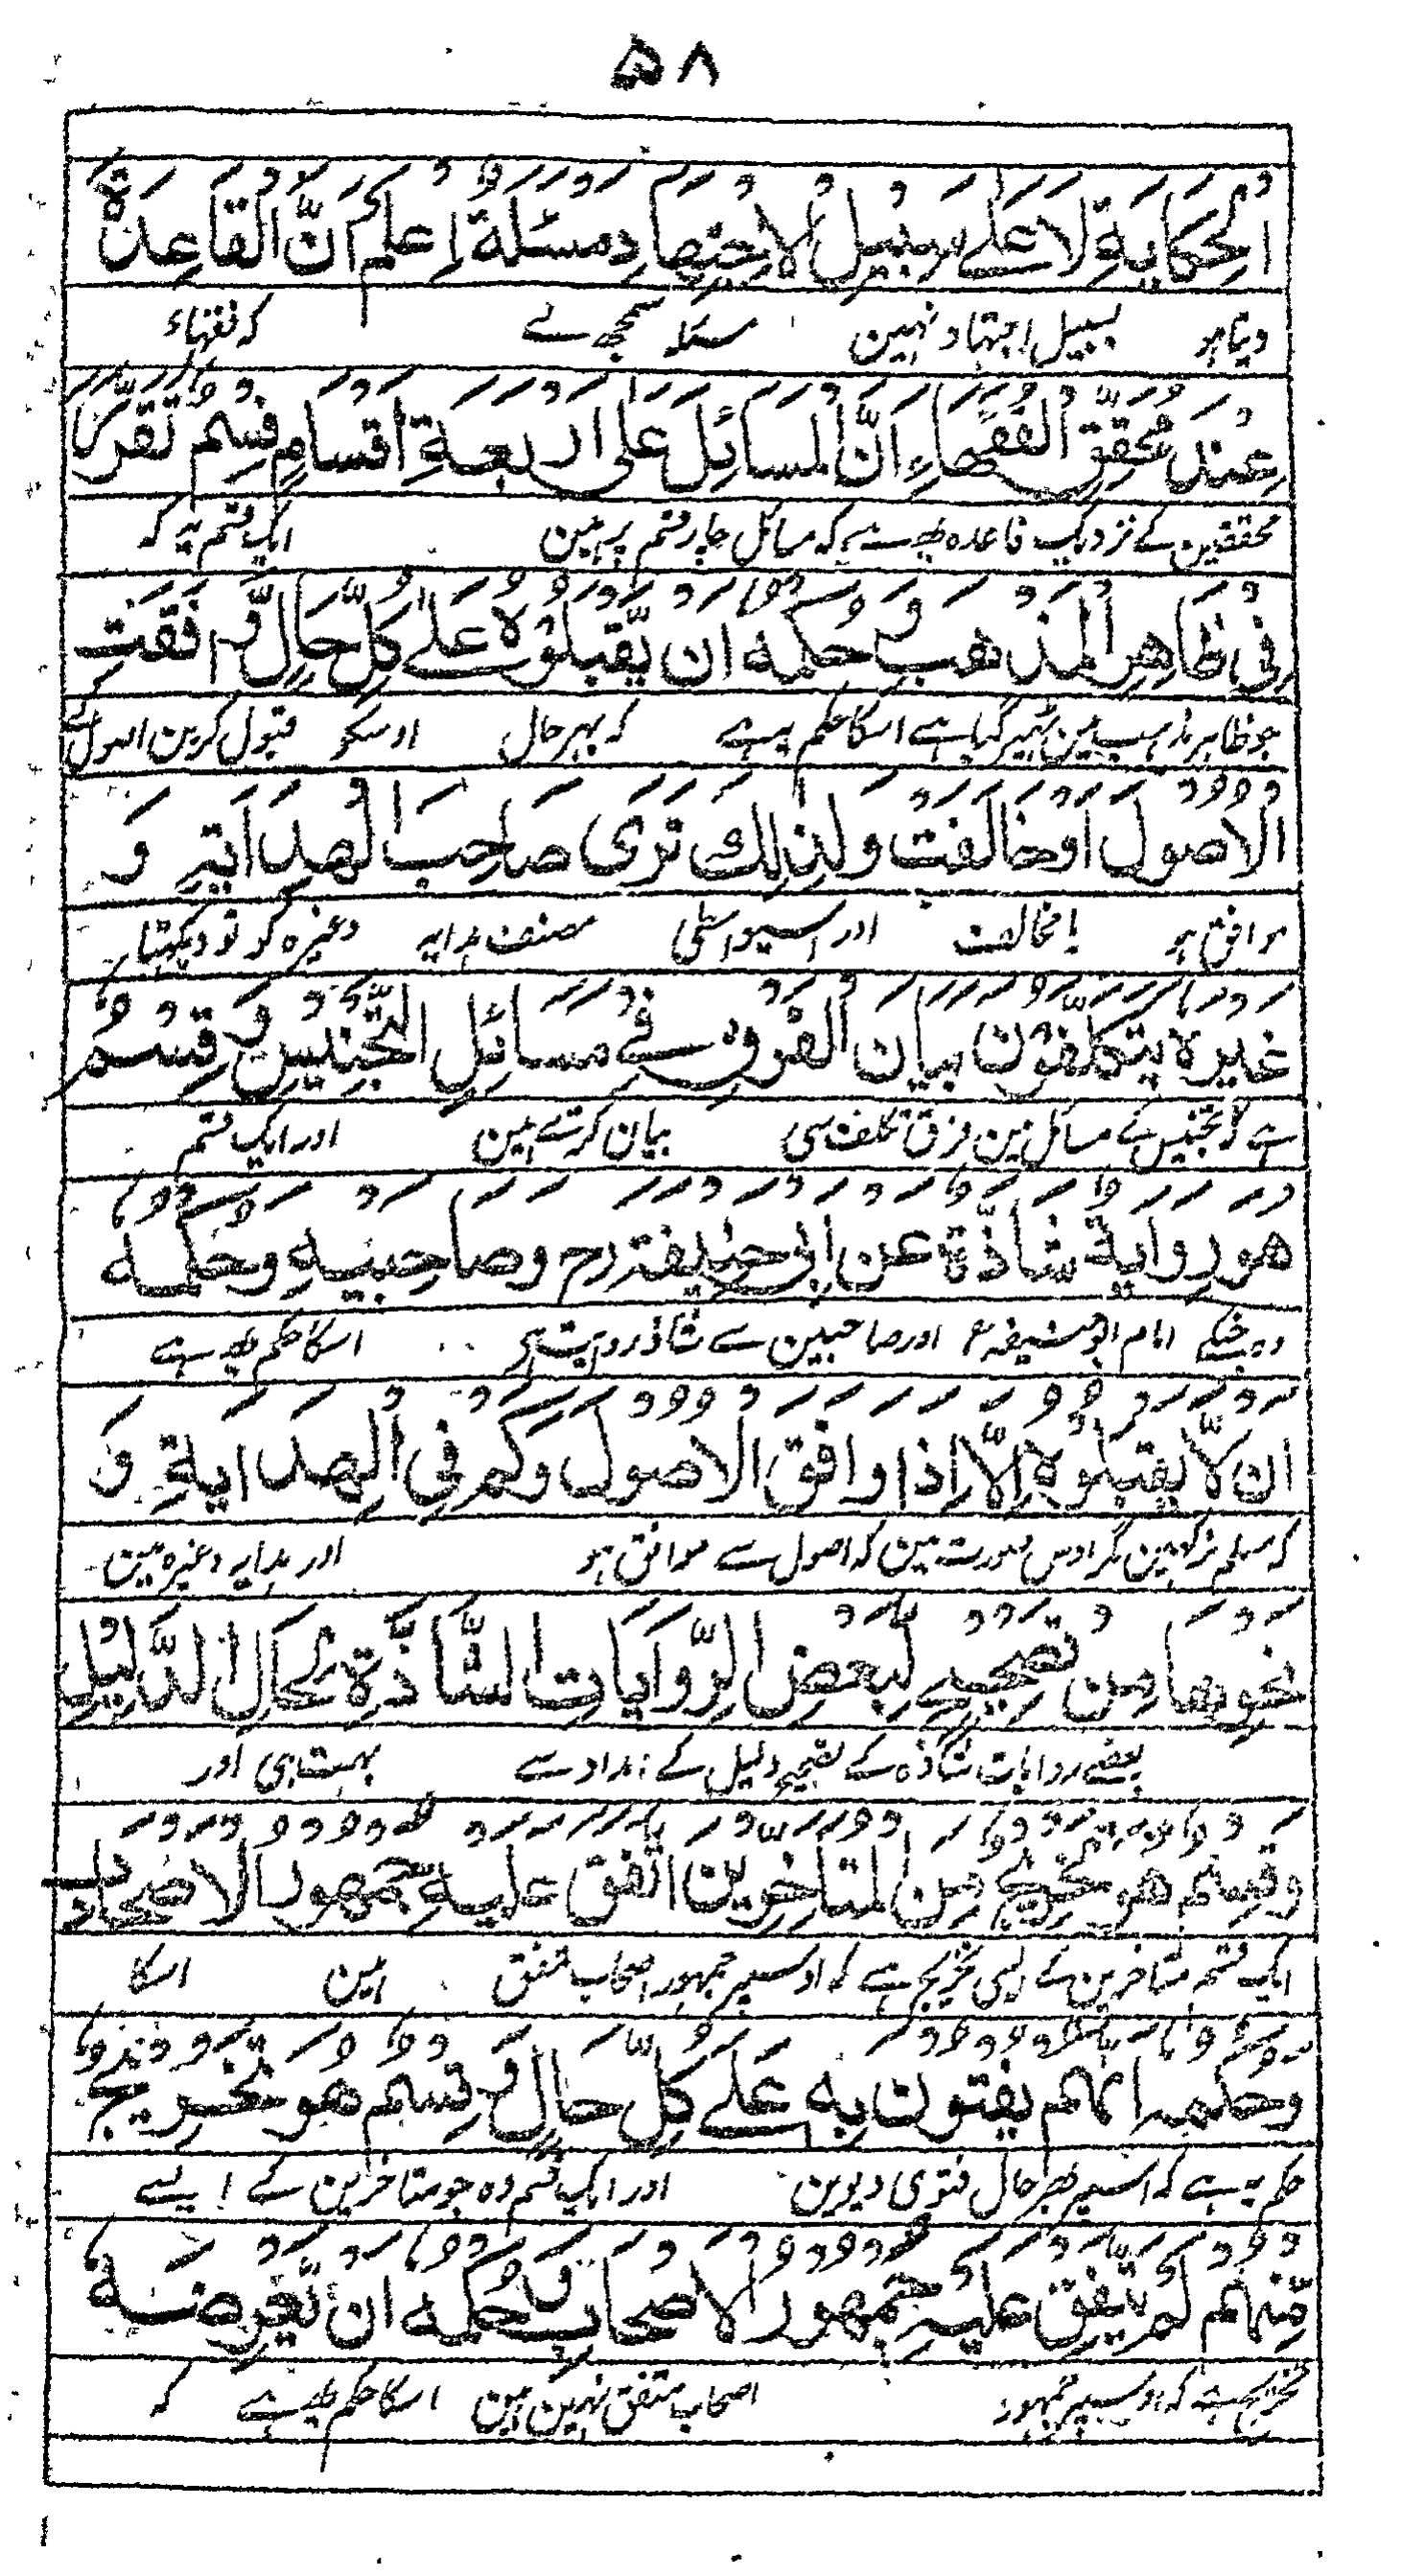 ۵۸
الْحِكَايَةِ لَا عَلٰے سَبِيْلِ الْاِجْتِهَادِ مسئلة اِعْلَمْ اَنَّ الْقَاعِدَةَ
دیتا ہو بسبیل اجتہاد نہین مسئلہ سمجھ لے کہ فقہاء
عِنْدَ مُحَقِّقِي الْفُقَهَاءِ اَنَّ الْمَسَائِلَ عَلٰى اَرْبَعَةِ اَقْسَامٍ قِسْمٌ تَقَرَّرَ
محققین کے نزدیک قاعدہ یہ ہے کہ مسائل چار قسم پر ہین ایک قسم یہ کہ
فِي ظَاهِرِ الْمَذْهَبِ وَحُكْمُهُ اَنْ يَّقْبَلُوْهُ عَلٰے كُلِّ حَالٍ وَّافَقَتِ
جو ظاہر مذہب مین ٹہیر گیا ہے اسکا حکم یہ ہے کہ بہر حال اوسکو قبول کرین اصول کے
الْاُصُوْلَ اَوْ خَالَفَتْ وَلِذٰلِكَ تَرٰى صَاحِبَ الْهِدَايَةِ وَ
موافق ہو یا مخالفت اور اسیواسطی مصنف ہدایہ وغیرہ کو تو دیکہتا
غَيْرَهُ يَتَكَلَّفُوْنَ بَيَانَ الْفَرْقِ فِے مَسَائِلِ التَّجْنِيْسِ وَقِسْمٌ
ہے کہ تجنیس کے مسائل مین فرق تکلف سی بیان کرتے ہین اور ایک قسم
هُوَ رِوَايَةٌ شَاذَّةٌ عَنْ اَبِيْ حَنِيْفَةَ رح وَصَاحِبَيْهِ وَحُكْمُهُ
وہ جسکے امام ابو حنیفہ رح اور صاحبین سے شاذ روایت ہی اسکا حکم یہ ہے
اَنْ لَّا يَقْبَلُوْهُ اِلَّا اِذَا وَافَقَ الْاُصُوْلَ وَكَمْ فِي الْهِدَايَةِ وَ
کہ مسلم نرکہین مگر اوس صورت مین کہ اصول سے موافق ہو اور ہدایہ وغیرہ مین
نَحْوِهَا مِنْ تَصْحِيْحٍ لِبَعْضِ الرِّوَايَاتِ الشَّاذَّةِ بِحَالِ الدَّلِيْلِ
بعضے روایات شاذہ کے تصحیح دلیل کے امداد سے بہت ہی اور
وَقِسْمٌ هُوَ تَخْرِيْجٌ مِنَ الْمُتَاَخِّرِيْنَ اتَّفَقَ عَلَيْهِ جُمْهُوْرُ الْاَصْحَابِ
ایک قسم متاخرین کے ایسی تخریج ہے کہ اوسپر جمہور اصحاب متفق ہین اسکا
وَحُكْمُهُ اَنَّهُمْ يُفْتُوْنَ بِهِ عَلٰے كُلِّ حَالٍ وَقِسْمٌ هُوَ تَخْرِيْجٌ
حکم یہ ہے کہ اسپر بہر حال فتوی دیوین اور ایک قسم وہ جو متاخرین کے ایسے
مِّنْهُمْ لَمْ يَتَّفِقْ عَلَيْهِ جُمْهُوْرُ الْاَصْحَابِ وَحُكْمُهُ اَنْ تَعْرِضَهُ
تخریج ہے کہ اوسپر جمہور اصحاب متفق نہین ہین اسکا حکم یہ ہے کہ